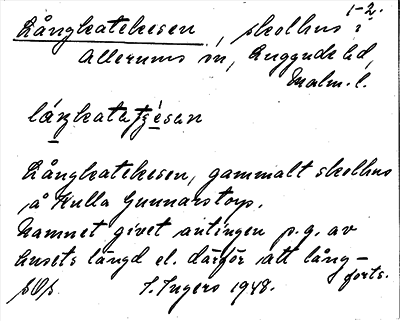 1-2.
Långkatekesen, skolhus i
Allerums sn, Luggude hd,
Malm. l.
Långkatekesen, gammalt skolhus
å Kulla Gunnarstorp.
Namnet givet antingen p.g. av
husets längd el. därför att lång-
forts.
I. Ingers 1948.